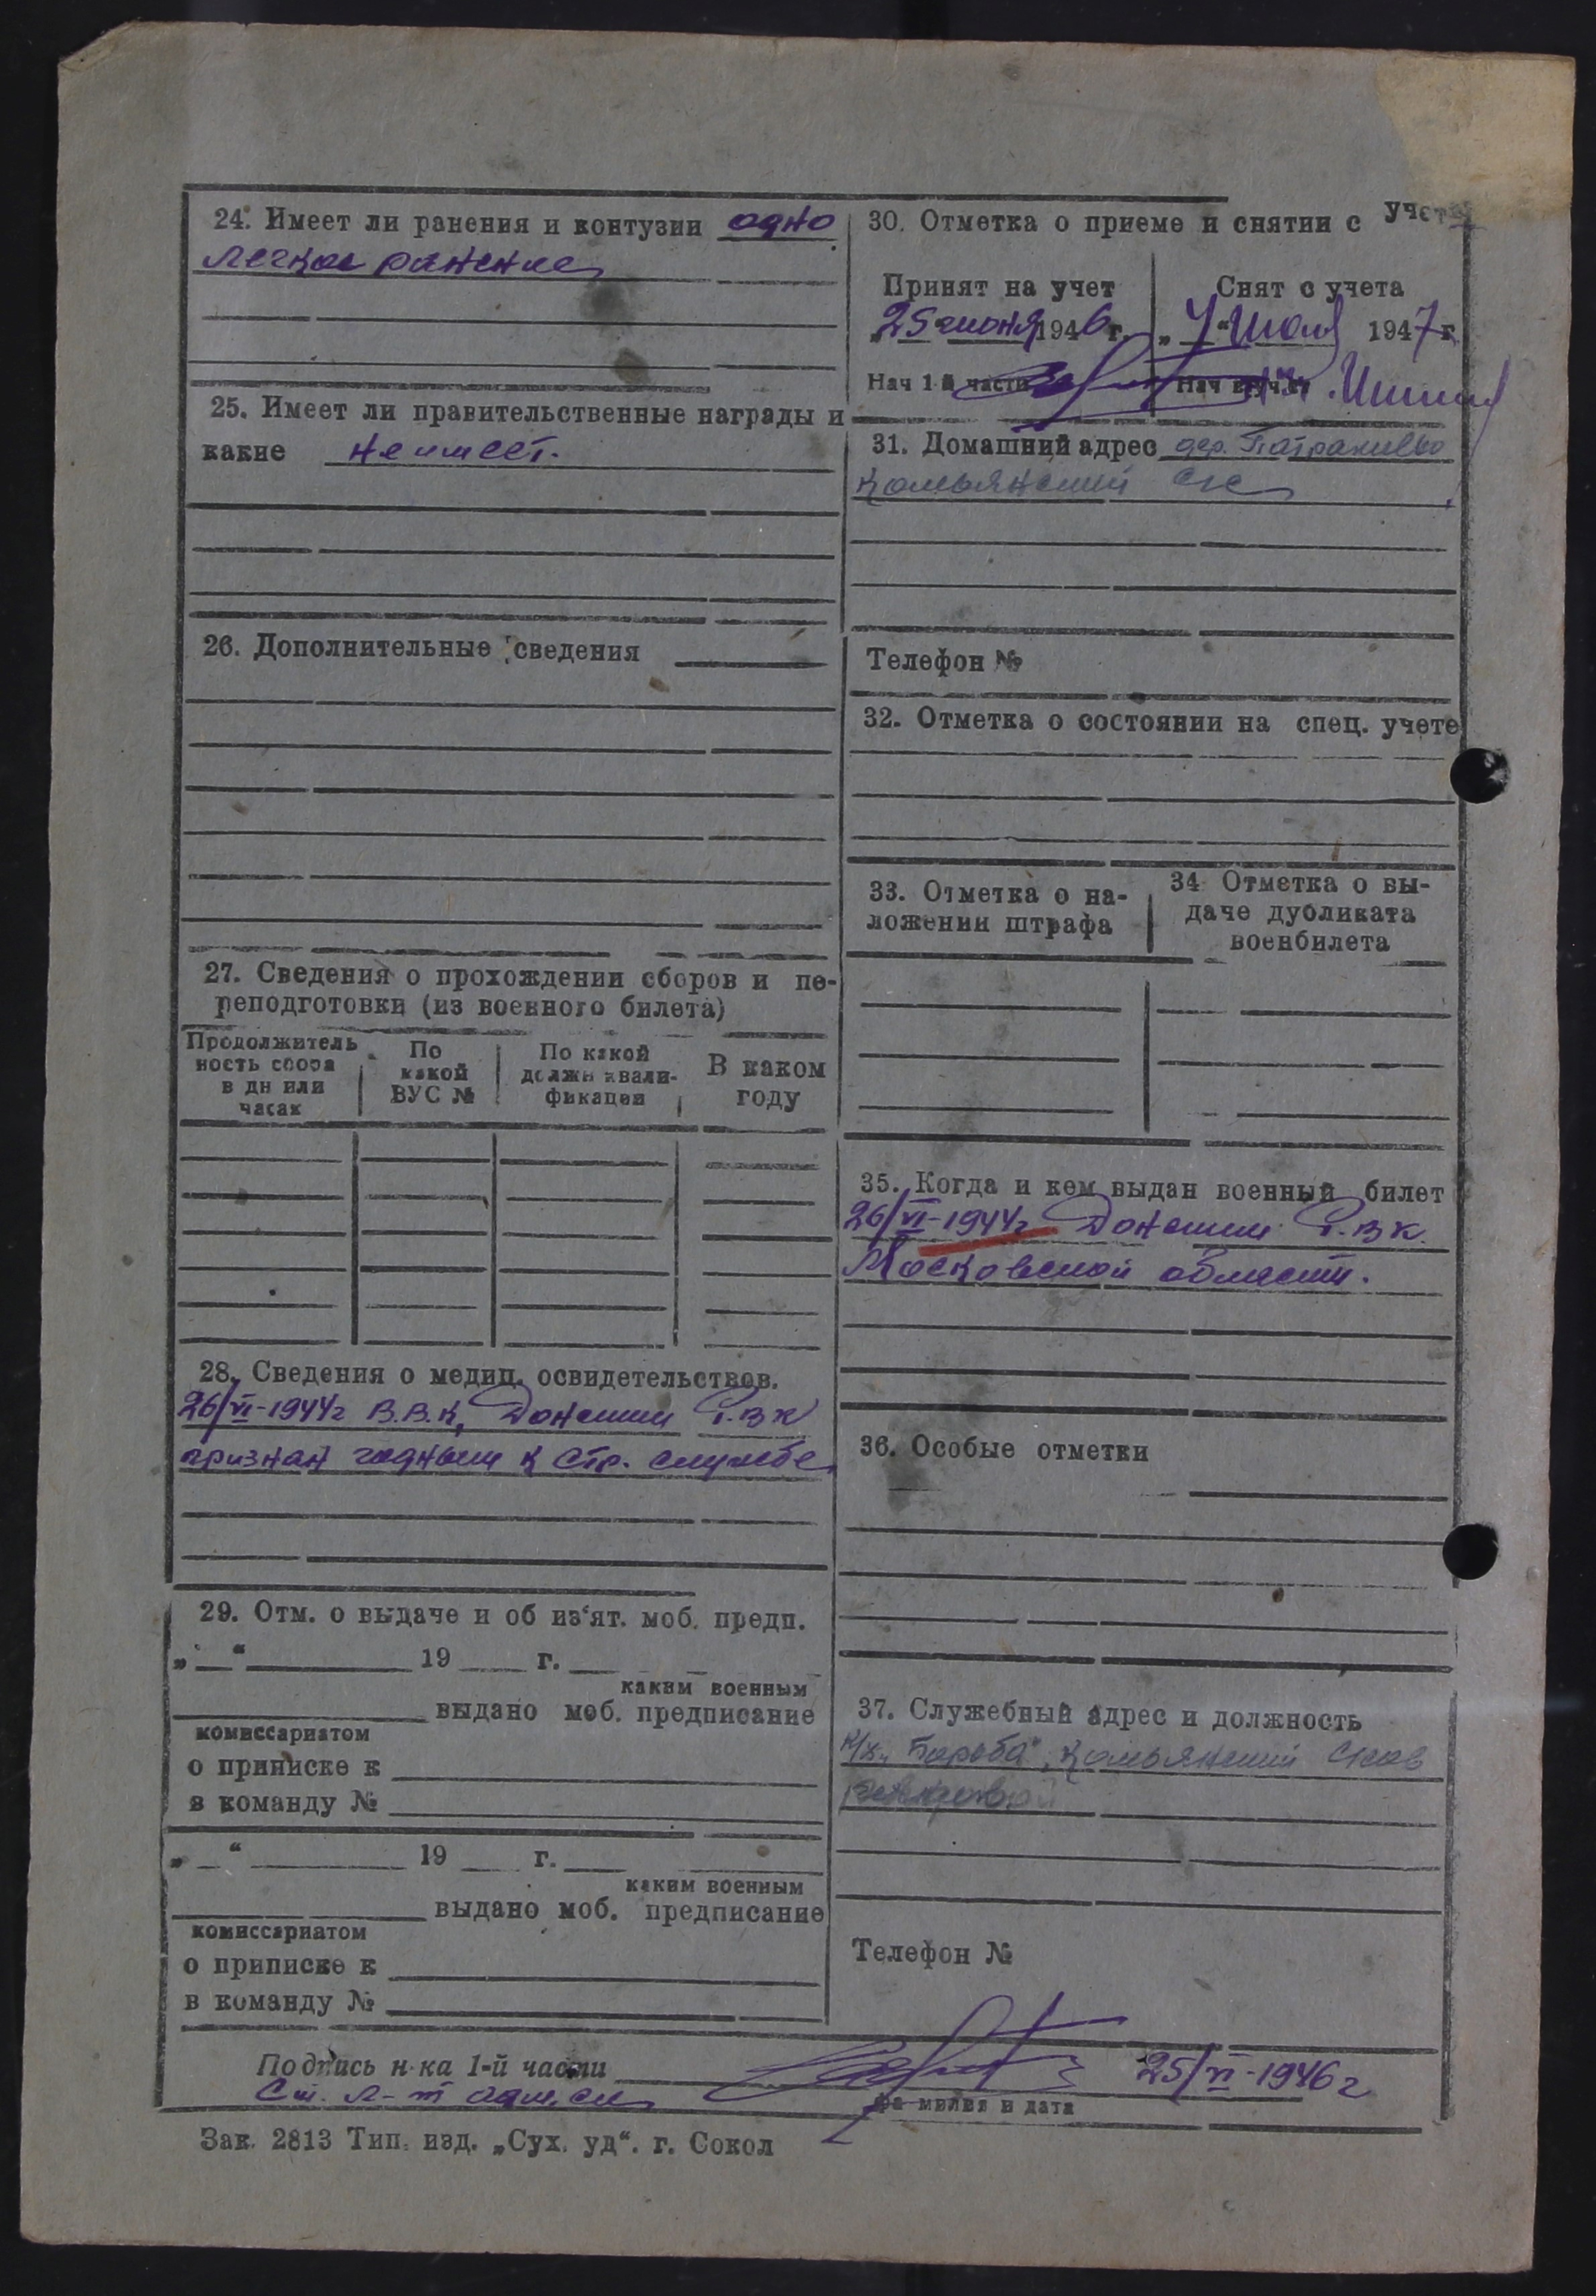 24. Имеет ли ранения и контузии одно
легкое ранение
25. Имеет ли правительственные награды и
какие не имеет.
26. Дополнительные сведения
27. Сведения о прохождении сборов и пе-
реподготовки (из военного билета)
Продолжитель
ность сбора
в дн или
часах
По
какой
ВУС №
По какой
должн квали-
фикации
В каком
году
28. Сведения о медиц. освидетельствов.
26/VI-1944г В.В.К, Донской Р.ВК
признан годным к стр. службе
29. Отм. о выдаче и об из‘ят. моб. предп.
„ “ 19 г.
каким военным
выдано моб. предписание
комиссариатом
о приписке к
в команду №
„ “ 19 г.
каким военным
выдано моб. предписание
комиссариатом
о приписке к
в команду №
30. Отметка о приеме и снятии с учета
Принят на учет
„25 июня 1946 г.
Нач 1-й части
Снят с учета
„7“ июля 1947 г
Нач
31. Домашний адрес дер.
Комьянский с/с
Телефон №
32. Отметка о состоянии на спец. учете
33. Отметка о на-
ложении штрафа
34 Отметка о вы-
даче дубликата
военбилета
35. Когда и кем выдан военный билет
26/VI-1944г Донским Р.ВК.
Московской области.
36. Особые отметки
37. Служебный адрес и должность
к/х „Борьба“, Комьянский
Телефон №
Подпись н-ка 1-й части
Ст. л-т адм. сл
25/VI-1946г
фамилия и дата
Зак. 2813 Тип. изд. „Сух. уд“. г. Сокол